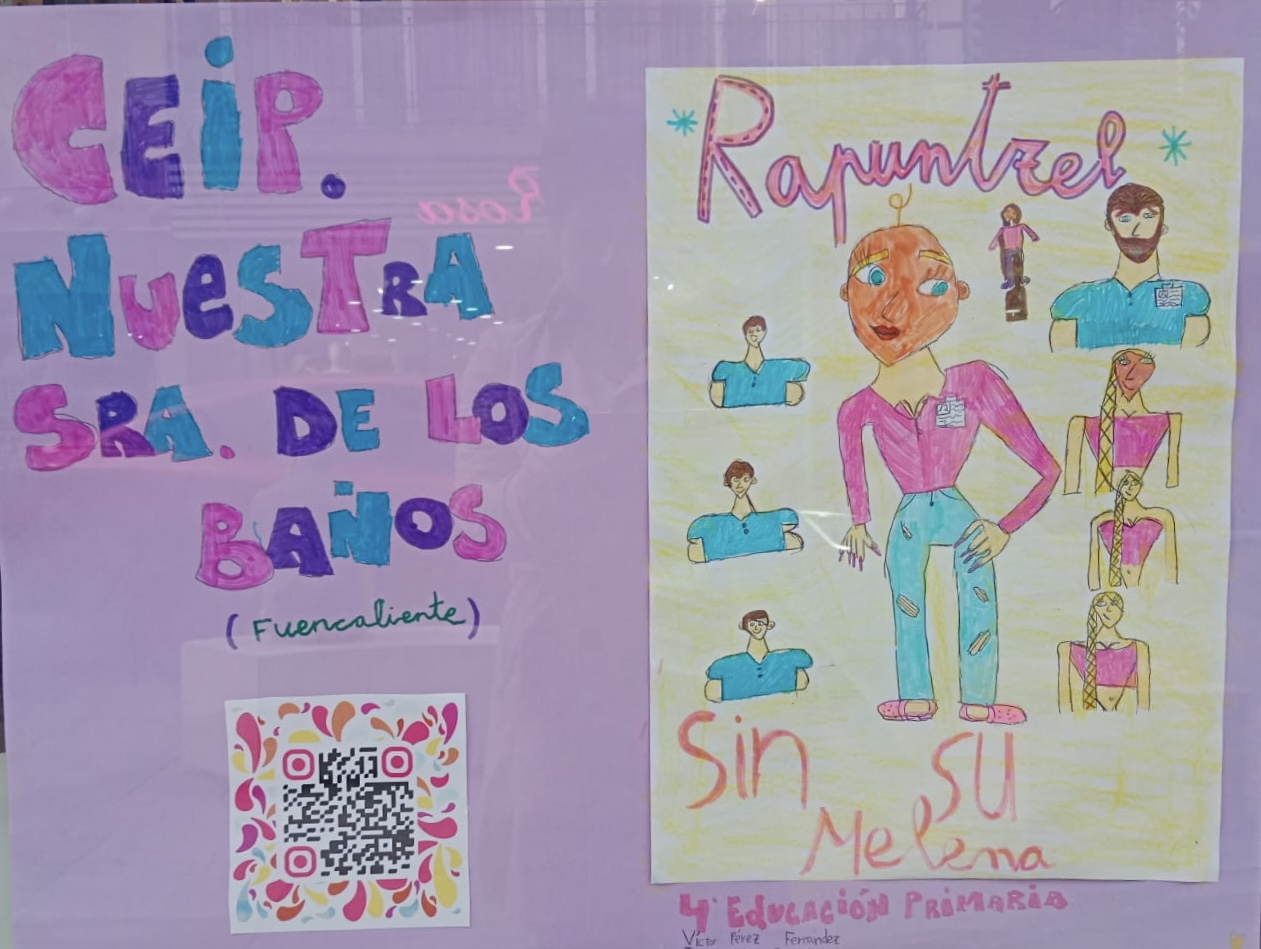 CEIP.
NUESTRA
SRA. DE LOS
BAÑOS
(Fuencaliente)
Rosa
Rapuntzel
Sin su
Melena
4º EDUCACIÓN PRIMARIA
Víctor Pérez Fernandez